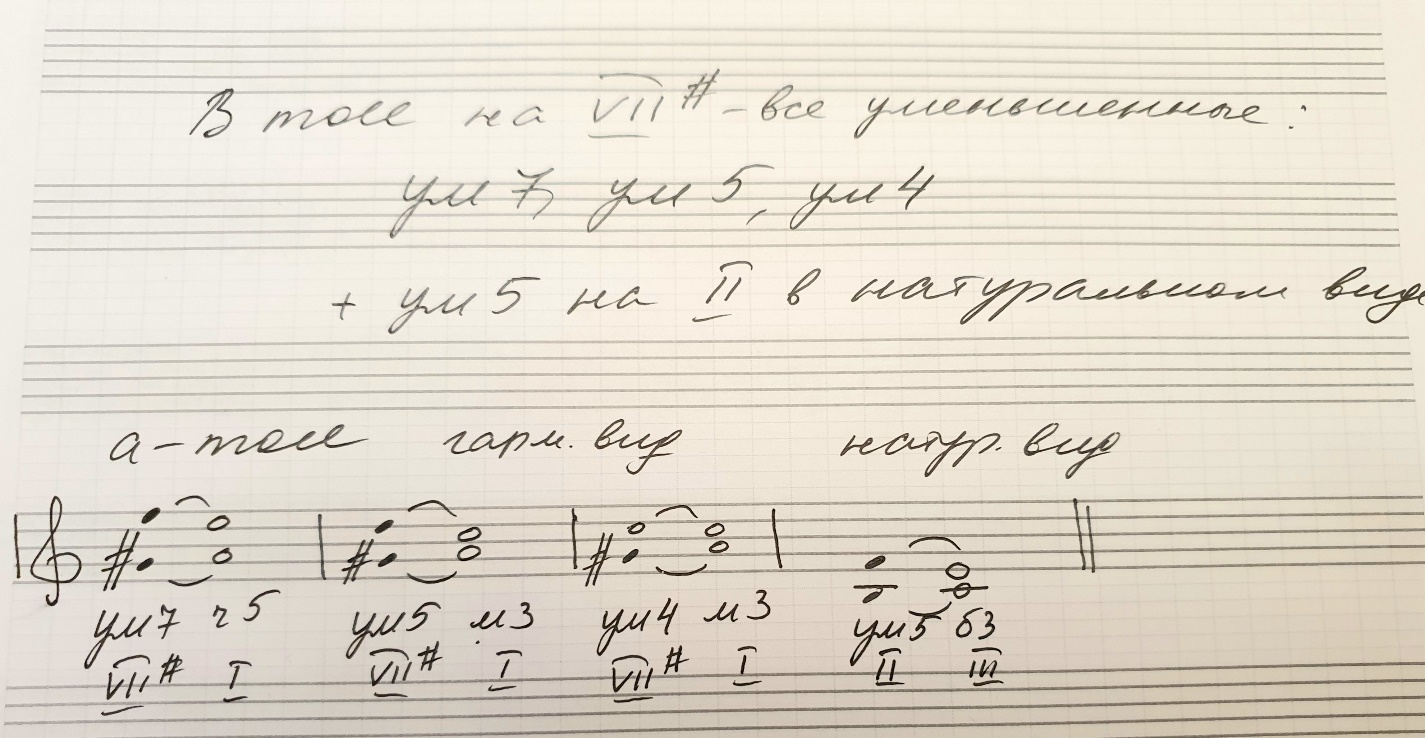 В moll на VII# - все уменьшенные:
ум 7, ум 5, ум 4
+ ум 5 на II в натуральном виде
a-moll гарм. вид натур. вид
ум7 ч5 ум5 м3 ум4 м3 ум5 б3
VII# I VII# I VII# I II III